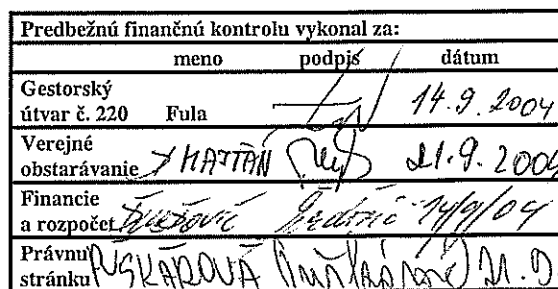 Predbežnú finančnú kontrolu vykonal za:
meno podpis dátum
Gestorský
útvar č. 220 Fula 14.9.2004
Verejné
obstarávanie MAJTÁN 21.9.2004
Financie
a rozpočet 14/9/04
Právnu
stránku PUŠKÁROVÁ 21.9